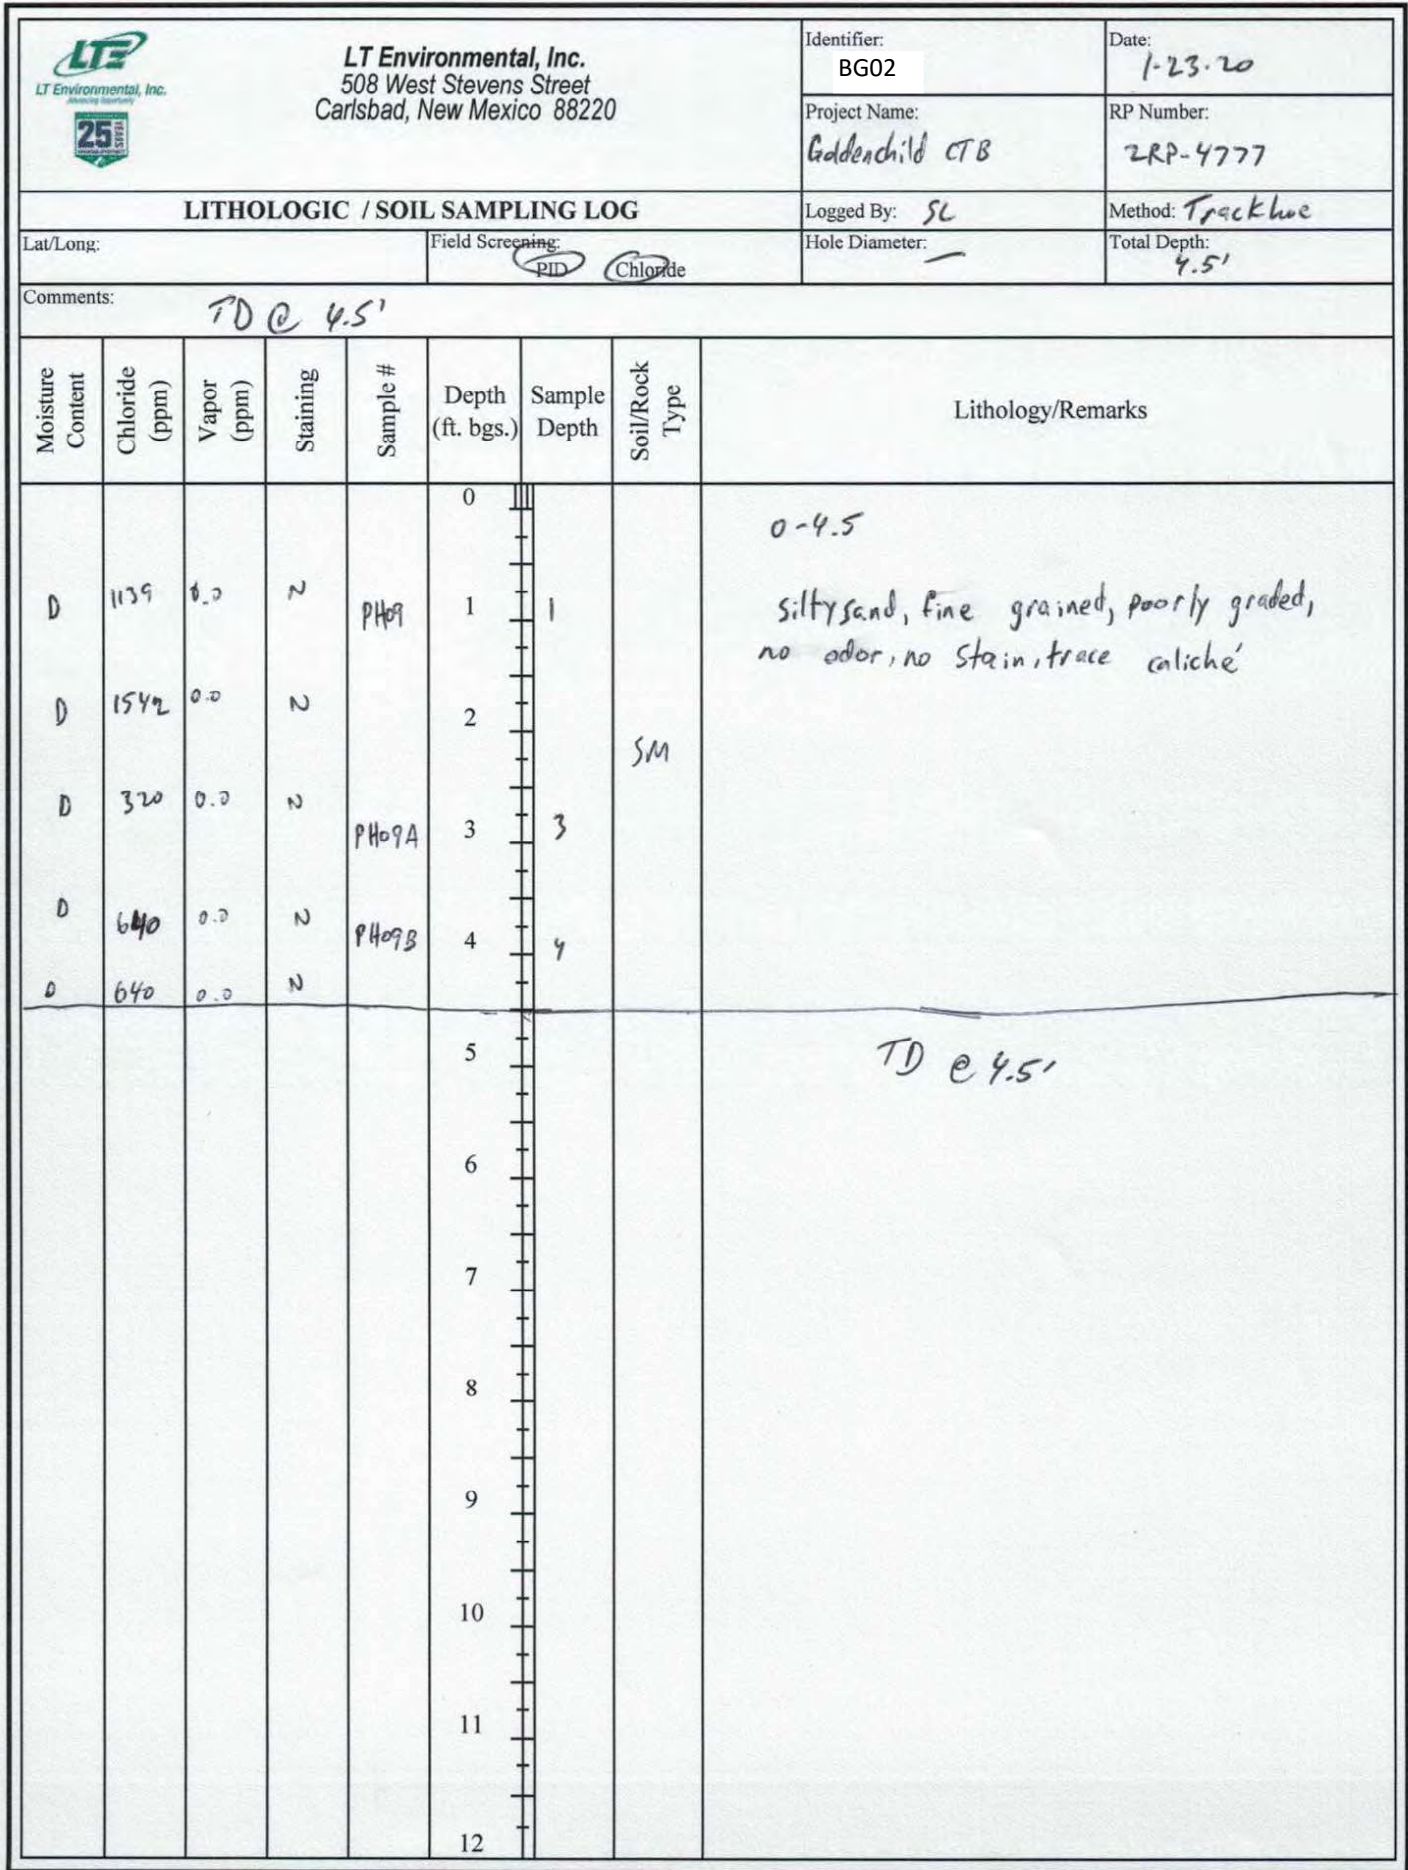 LTE
LT Environmental, Inc.
Advancing Opportunity
25 YEARS
LT Environmental, Inc.
508 West Stevens Street
Carlsbad, New Mexico 88220
Identifier:
BG02
Date:
1-23-20
Project Name:
Goldenchild CTB
RP Number:
2RP-4777
LITHOLOGIC / SOIL SAMPLING LOG
Logged By: SL
Method: Trackhoe
Lat/Long:
Field Screening:
PID Chloride
Hole Diameter: —
Total Depth:
4.5'
Comments:
TD @ 4.5'
Moisture Content
Chloride (ppm)
Vapor (ppm)
Staining
Sample #
Depth (ft. bgs.)
Sample Depth
Soil/Rock Type
Lithology/Remarks
0
0-4.5
D 1139 0.0 N PH09 1 1
silty sand, fine grained, poorly graded,
no odor, no stain, trace caliché
D 1542 0.0 N 2
SM
D 320 0.0 N PH09A 3 3
D 640 0.0 N PH09B 4 4
D 640 0.0 N
5
TD @ 4.5'
6
7
8
9
10
11
12